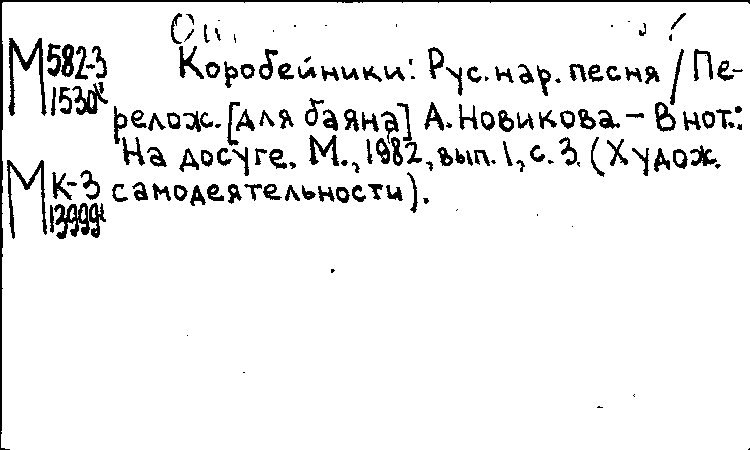 М 582-3 Коробейники: Рус. нар. песня / Пе-
1530
релож. [для баяна] А. Новикова. - В нот.:
На досуге. М., 1982, вып. 1, с. 3. (Худож.
М К-3 самодеятельности).
13999